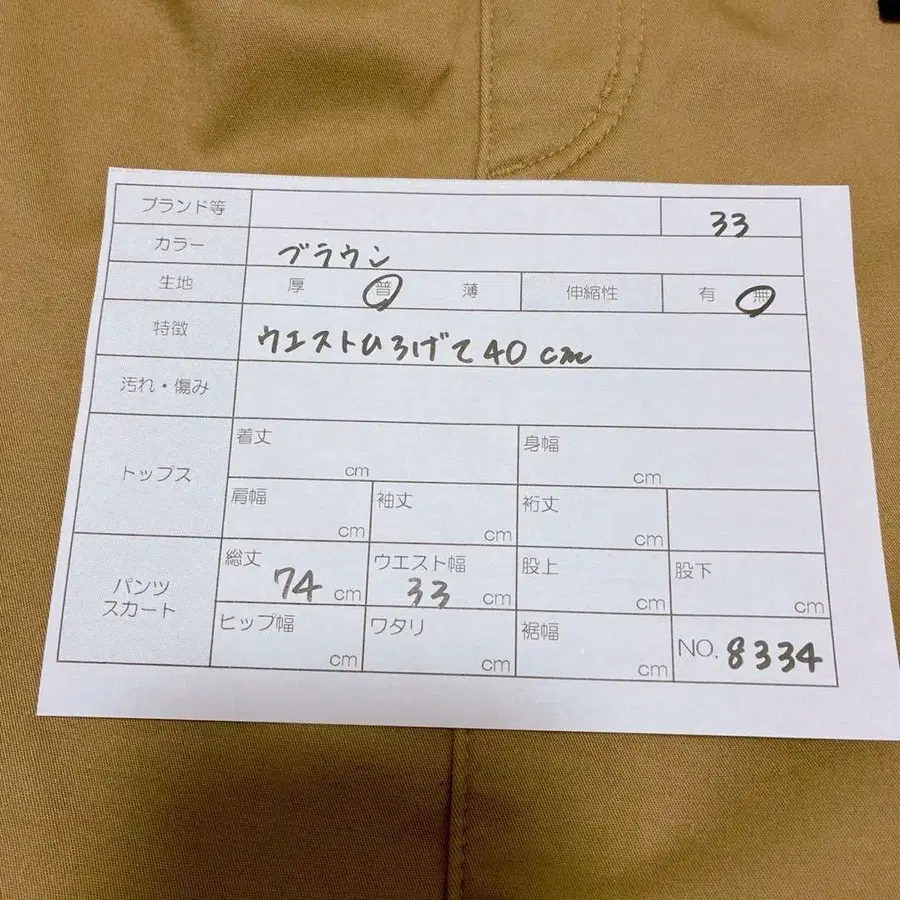 ブランド等 33
カラー ブラウン
生地 厚 普 薄 伸縮性 有 無
特徴 ウエストひろげて40cm
汚れ・傷み
トップス 着丈 cm 身幅 cm
肩幅 cm 袖丈 cm 裄丈 cm
パンツ スカート 総丈 74 cm ウエスト幅 33 cm 股上 cm 股下 cm
ヒップ幅 cm ワタリ cm 裾幅 cm NO. 8334